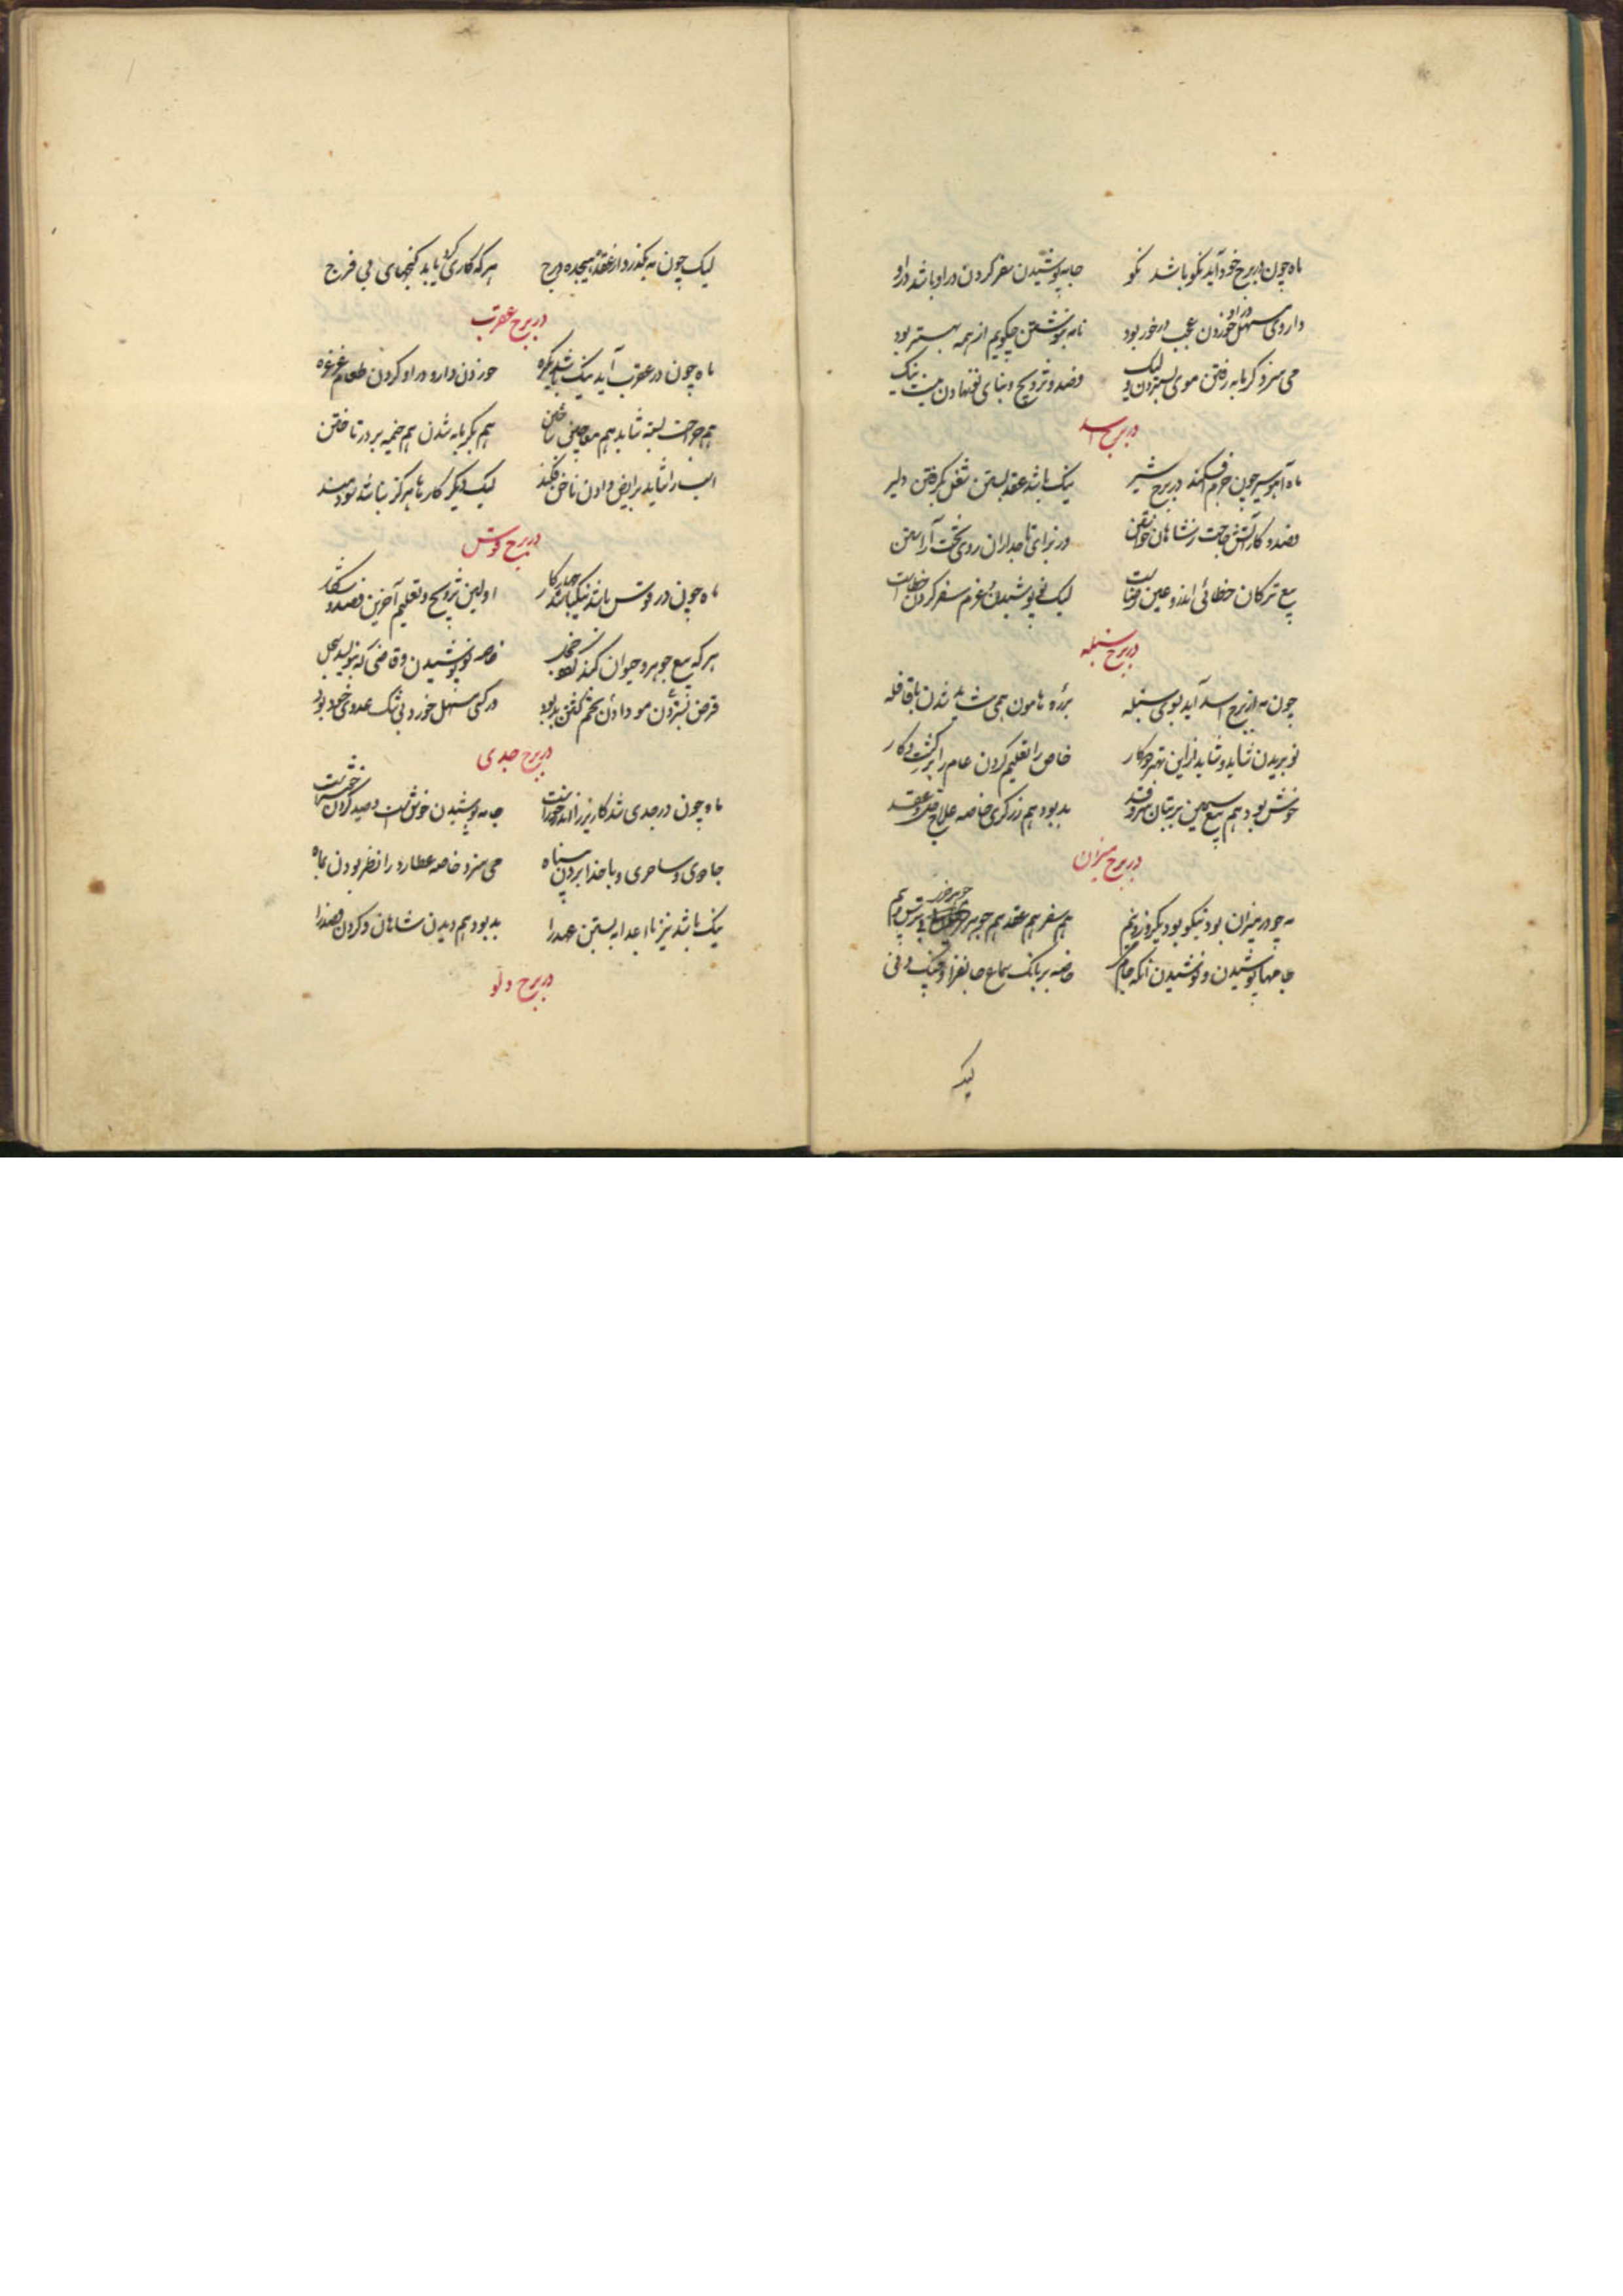 ماه چون در برج خود آید نکو باشد نکو جامه پوشیدن سفر کردن در او باشد در او
داروی مسهل در او خوردن عجب در خور بود نامه بنوشتن چکویم از همه بهتر بود
می سزد کرمابه رفتن موی بستردن ولیک فصد و تزویج و بنای نو نهادن نیست نیک
در برج اسد
ماه آهو سیر چون خرم افکند در برج شیر نیک باشد عقد بستن شغل بکرفتن دلیر
فصد و کار آتش حاجت ز شاهان خواستن در نوای تاجداران روی تخت آراستن
بیع ترکان خطائی اندرو عین لیک نو پوشیدن و عزم سفر کردن خطاست
در برج سنبله
چون مه از برج اسد آید بسوی سنبله بر ره هامون همی شاید شدن با قافله
نو بریدن شاید و شاید ازین بهتر دو کار خاص را تعلیم کردن عام را کشت و کار
خوش بود هم بیع سیمین بر بتان سرو قد بد بود هم زرکری خاصه علاج و عقد
در برج میزان
مه چو در میزان بود نیکو بود یکروز و نیم هم سفر هم عقد هم جوهر خریدن بی ترس و بیم
جامها پوشیدن و نوشیدن انکه جام خاصه بر بانک سماع جانفزا و چنک و نی
لیک
لیک چون مه بکذرد از عقد هیجده درج هرکه کاری کرد یابد کنجهای بی فرج
در برج عقرب
ماه چون در عقرب آید نیک باشد یکسره خوردن دارو در او کردن طعام غرغره
هم جراحت بسته شاید هم معاجین ساختن هم بکرمابه شدن هم خیمه بر در تاختن
اسب را شاید برایض دادن ناخن فکند لیک دیکر کارها هرکز نباشد سودمند
در برج قوس
ماه چون در قوس باشد نیک باشد چار کار اولین تزویج و تعلیم آخرین فصد و شکار
هرکه بیع جوهر و حیوان کند خاصه نو پوشیدن و قاضی که بنویسد سجل
قرض بستردن مو دادن تخم کفتن بد بود در کسی مسهل خورد بی شک عدوی خود بود
در برج جدی
ماه چون در جدی شد کاریز را جامه پوشیدن خوش است و صید کردن خوشتر است
جادوی و ساحری و با خدا بردن پناه می سزد خاصه عطارد را نظر بودن بماه
نیک باشد نیز با اعدا به بستن عهد را بد بود هم دیدن شاهان و کردن فصد را
در برج دلو